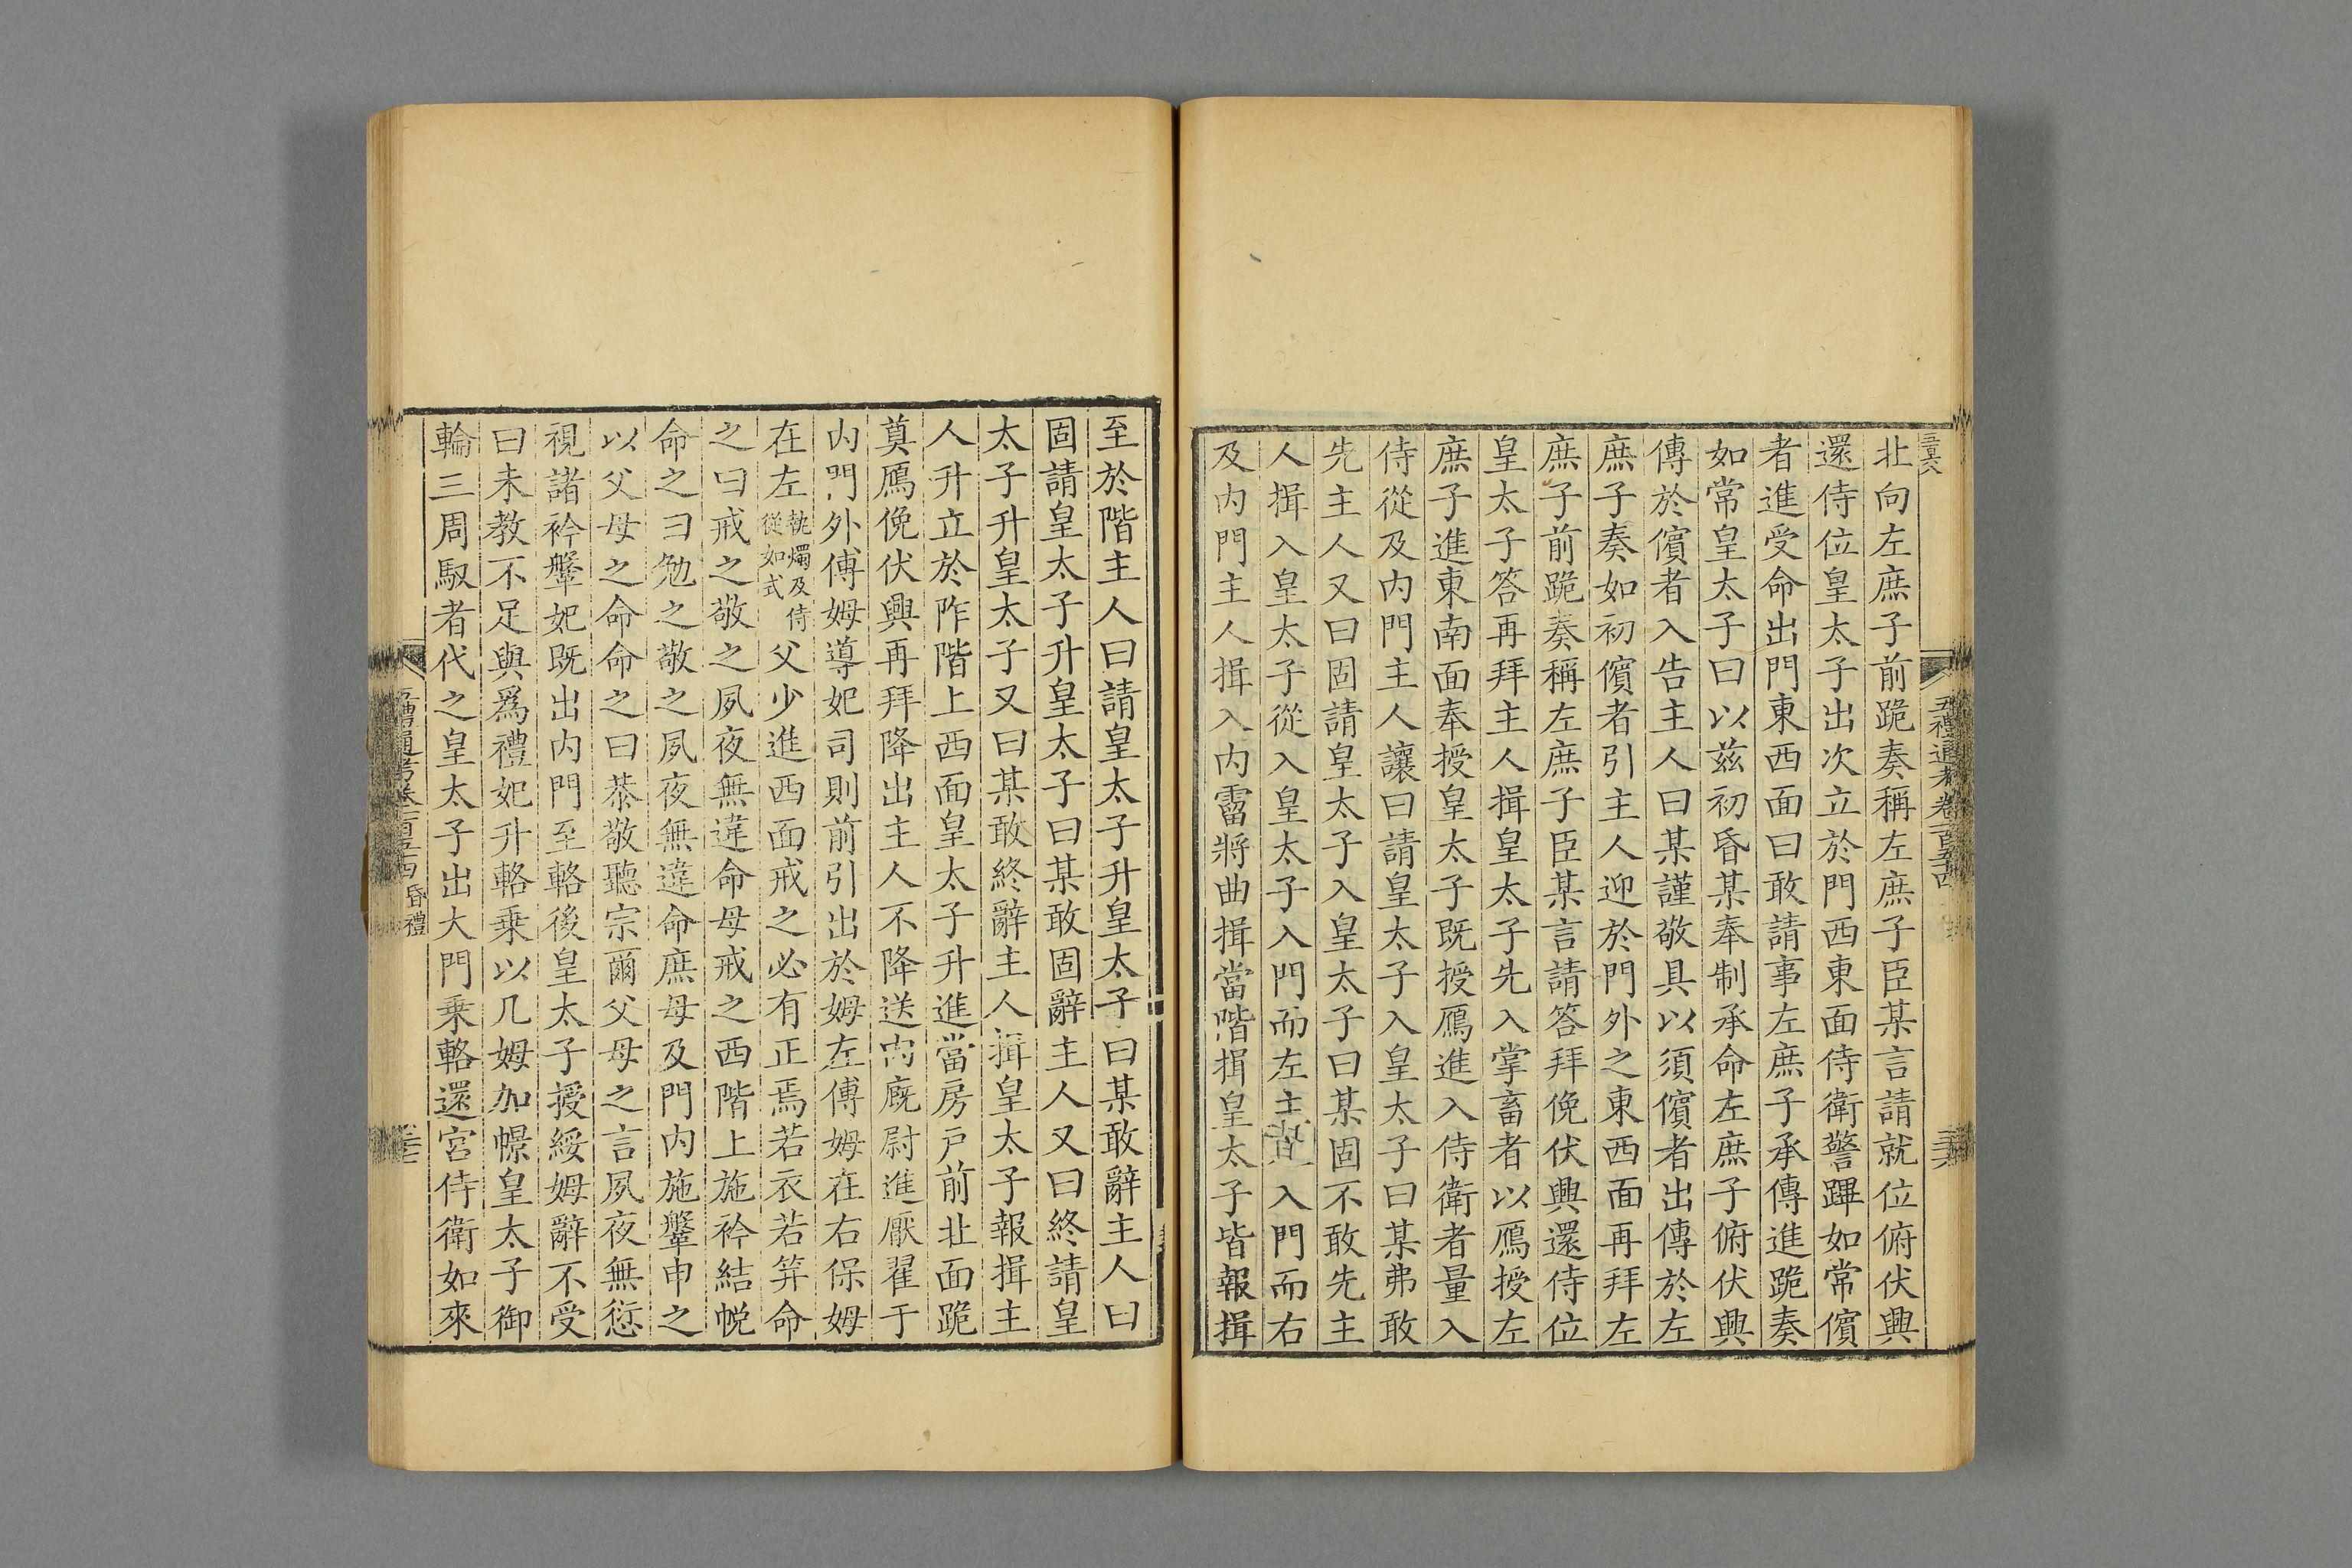 北向左庶子前跪奏稱左庶子臣某言請就位俯伏興
還侍位皇太子出次立於門西東面侍衛警蹕如常儐
者進受命出門東西面曰敢請事左庶子承傳進跪奏
如常皇太子曰以茲初昏某奉制承命左庶子俯伏興
傳於儐者入告主人曰某謹敬具以須儐者出傳於左
庶子奏如初儐者引主人迎於門外之東西面再拜左
庶子前跪奏稱左庶子臣某言請答拜俛伏興還侍位
皇太子答再拜主人揖皇太子先入掌畜者以鴈授左
庶子進東南面奉授皇太子既授鴈進入侍衛者量入
侍從及內門主人讓曰請皇太子入皇太子曰某弗敢
先主人又曰固請皇太子入皇太子曰某固不敢先主
人揖入皇太子從入皇太子入門而左主人入門而右
及內門主人揖入內霤將曲揖當階揖皇太子皆報揖
至於階主人曰請皇太子升皇太子曰某敢辭主人曰
固請皇太子升皇太子曰某敢固辭主人又曰終請皇
太子升皇太子又曰某敢終辭主人揖皇太子報揖主
人升立於阼階上西面皇太子升進當房戶前北面跪
奠鴈俛伏興再拜降出主人不降送內廐尉進厭翟于
內門外傅姆導妃司則前引出於姆左傅姆在右保姆
在左執燭及侍從如式父少進西面戒之必有正焉若衣若笄命
之曰戒之敬之夙夜無違命母戒之西階上施衿結帨
命之曰勉之敬之夙夜無違命庶母及門內施鞶申之
以父母之命命之曰恭敬聽宗爾父母之言夙夜無愆
視諸衿鞶妃既出內門至輅後皇太子授綏姆辭不受
曰未教不足與爲禮妃升輅乗以几姆加幜皇太子御
輪三周馭者代之皇太子出大門乗輅還宮侍衛如來
五禮通考卷一百五十四 昏禮